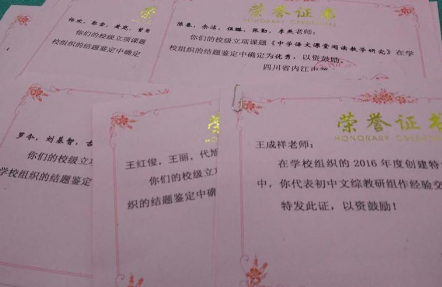 荣
荣誉证书
HONORARY CREDENTIAL
老师:
你们的校级立项课题
校组织的结题鉴定中确定
你们的校级立项课题《中学语文课堂阅读教学研究》在学
校组织的结题鉴定中确定为优秀,以资鼓励。
四川省内江市
罗冬,刘基智,
你们的校级立项
学校组织的结题鉴定
王红俊,王丽,代旭
你们的校级立
织的结题鉴定中确
荣誉证书
HONORARY CREDENTIAL
王成祥老师:
在学校组织的2016年度创建特
中,你代表初中文综教研组作经验交
特发此证,以资鼓励!